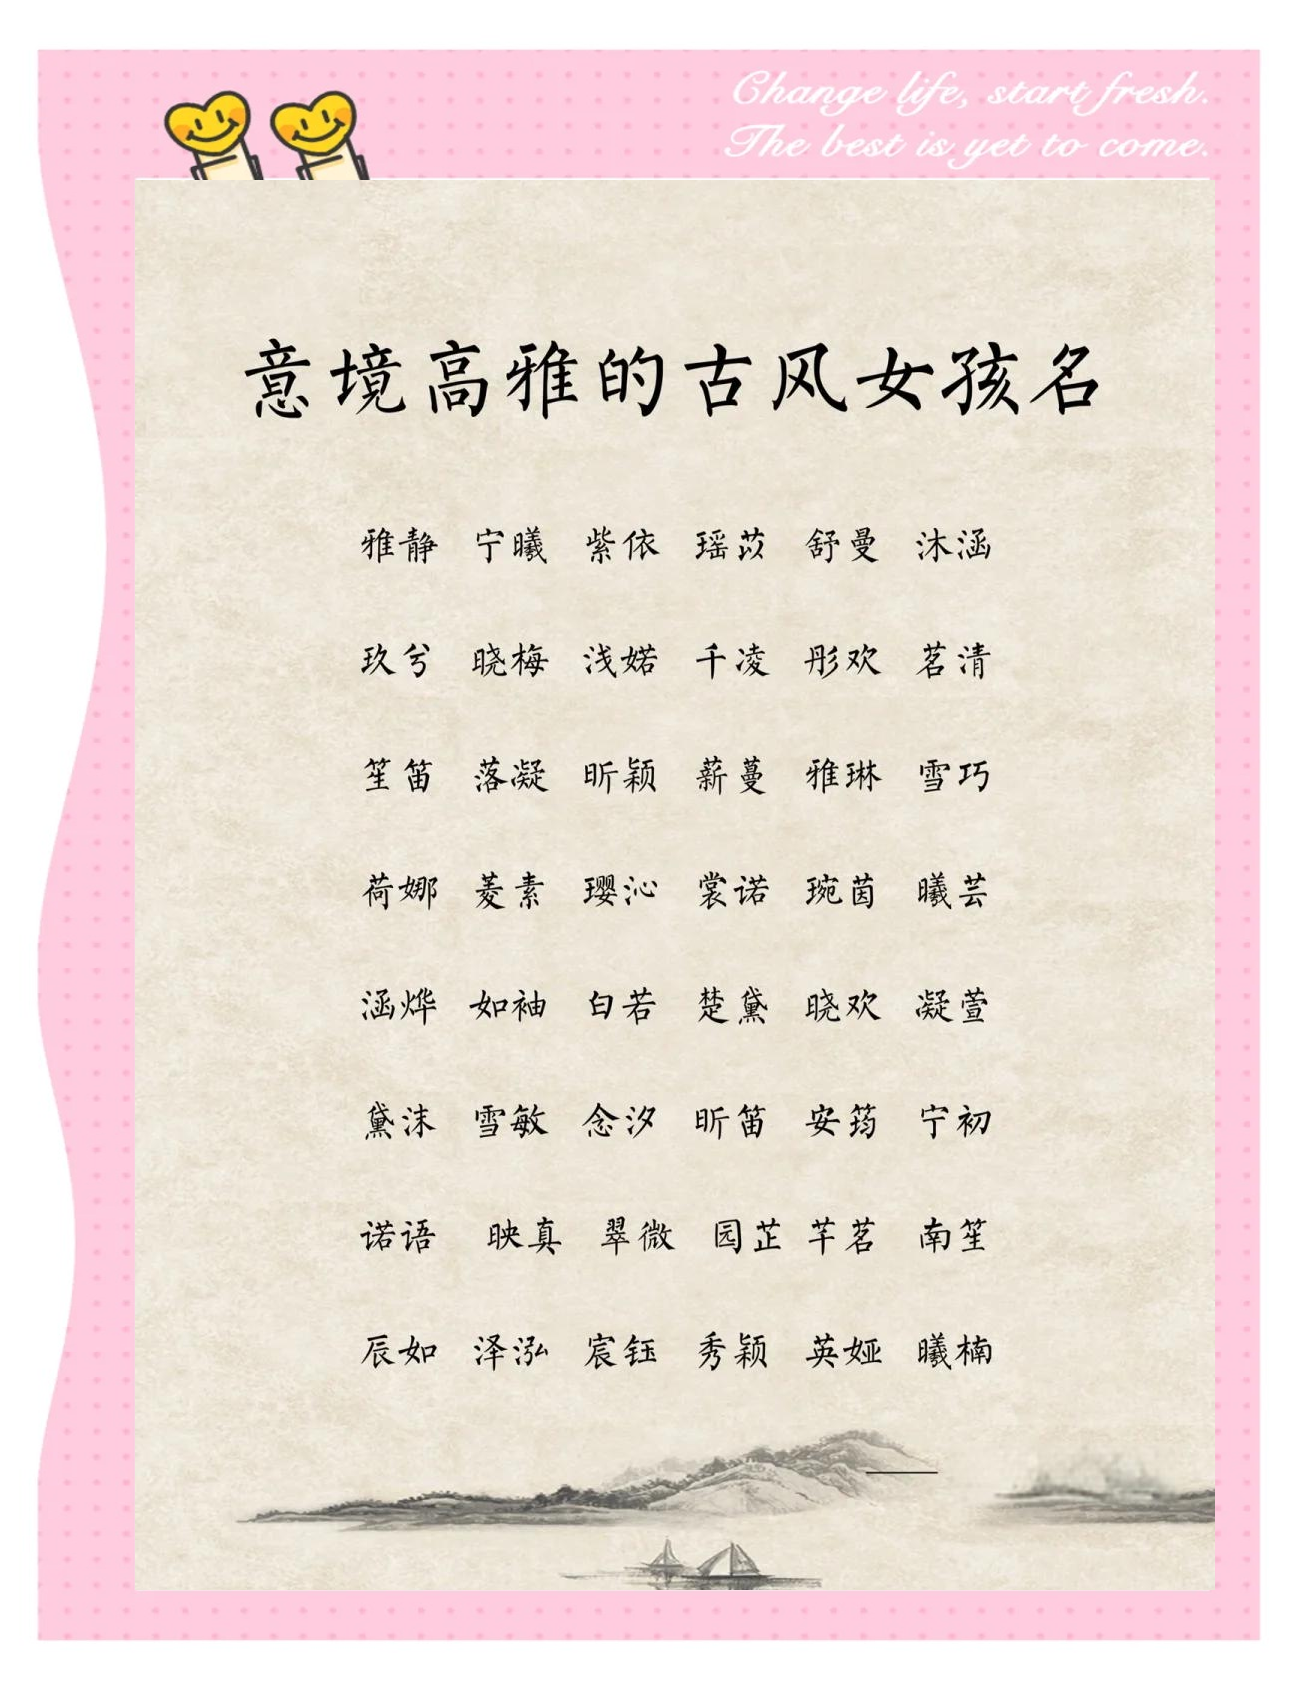 Change life, start fresh.
The best is yet to come.
意境高雅的古风女孩名
雅静 宁曦 紫依 瑶苡 舒曼 沐涵
玖兮 晓梅 浅婼 千凌 彤欢 茗清
笙笛 落凝 昕颖 薪蔓 雅琳 雪巧
荷娜 菱素 璎沁 裳诺 琬茵 曦芸
涵烨 如袖 白若 楚黛 晓欢 凝萱
黛沫 雪敏 念汐 昕笛 安筠 宁初
诺语 映真 翠微 园芷 芊茗 南笙
辰如 泽泓 宸钰 秀颖 英娅 曦楠